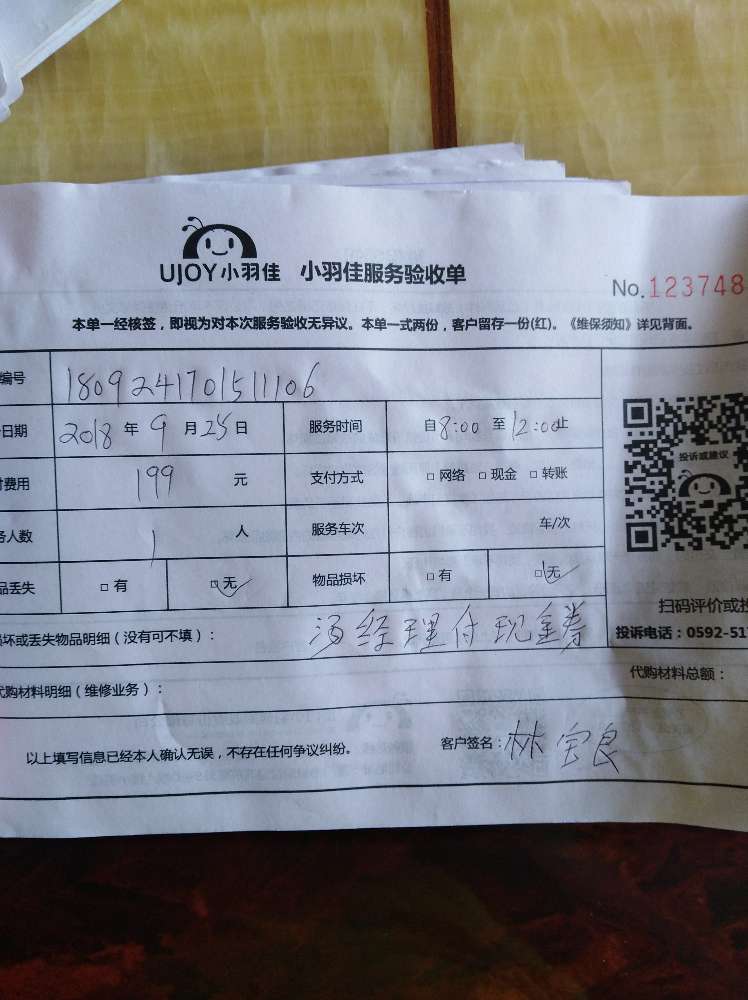 UJOY小羽佳 小羽佳服务验收单
No.123748
本单一经核签，即视为对本次服务验收无异议。本单一式两份，客户留存一份(红)。《维保须知》详见背面。
编号 1809241701511106
日期 2018 年 9 月 25 日 服务时间 自8:00 至12:00止
费用 199 元 支付方式 □ 网络 □ 现金 □ 转账
务人数 1 人 服务车次 车/次
品丢失 □ 有 □ 无 物品损坏 □ 有 □ 无
投诉或建议
扫码评价或投
投诉电话：0592-51
坏或丢失物品明细（没有可不填）： 汤经理付现金券
代购材料总额：
代购材料明细（维修业务）：
以上填写信息已经本人确认无误，不存在任何争议纠纷。 客户签名：林宝良